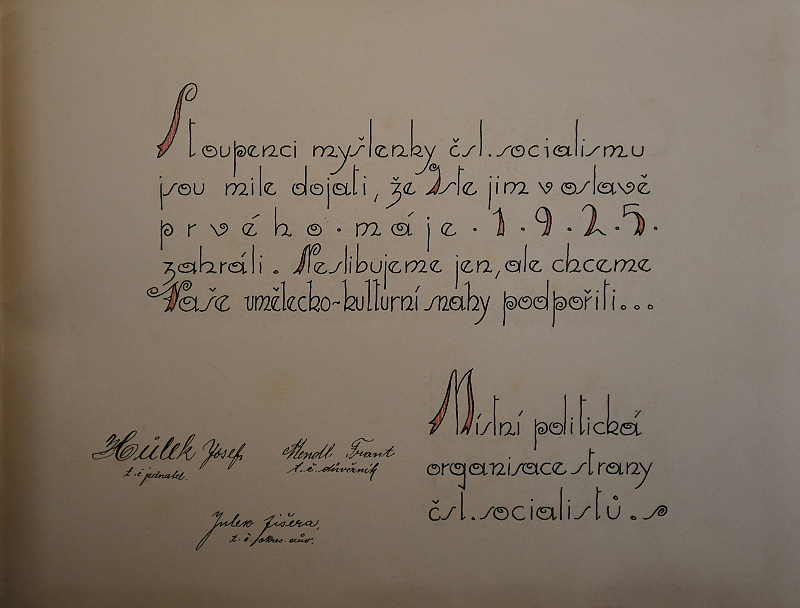 Stoupenci myšlenky čsl. socialismu
jsou mile dojati, že Jste jim v oslavě
prvého · máje · 1 · 9 · 2 · 5 ·
zahráli. Neslibujeme jen, ale chceme
Vaše umělecko-kulturní snahy podpořiti...
Místní politická
organisace strany
čsl. socialistů.
Hůlek Josef
t. č. jednatel.
Mendl Frant
t. č. důvěrník
Julek Jišera,
t. č. okres. dův.